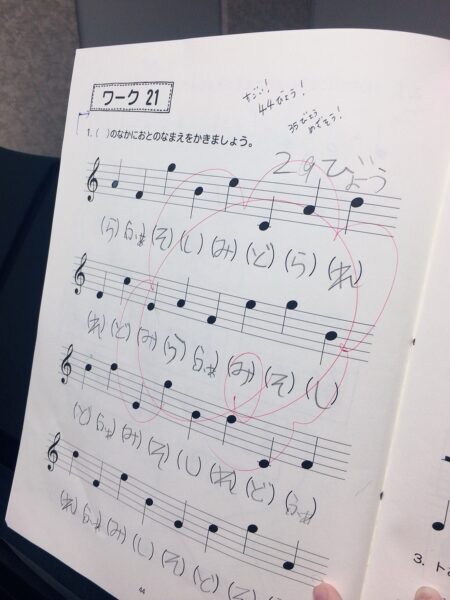 ワーク 21
すごい!
44びょう!
35びょう
めざそう!
1. ( )のなかにおとのなまえをかきましょう。
29びょう
(ら) (ふぁ) (そ) (し) (み) (ど) (ら) (れ)
(れ) (ど) (み) (ら) (ふぁ) (み) (そ) (し)
(ど) (ふぁ) (み) (そ) (し) (れ) (ど) (ふぁ)
(れ) (ふぁ) (み) (し) (そ) (ど)
44
3. ト